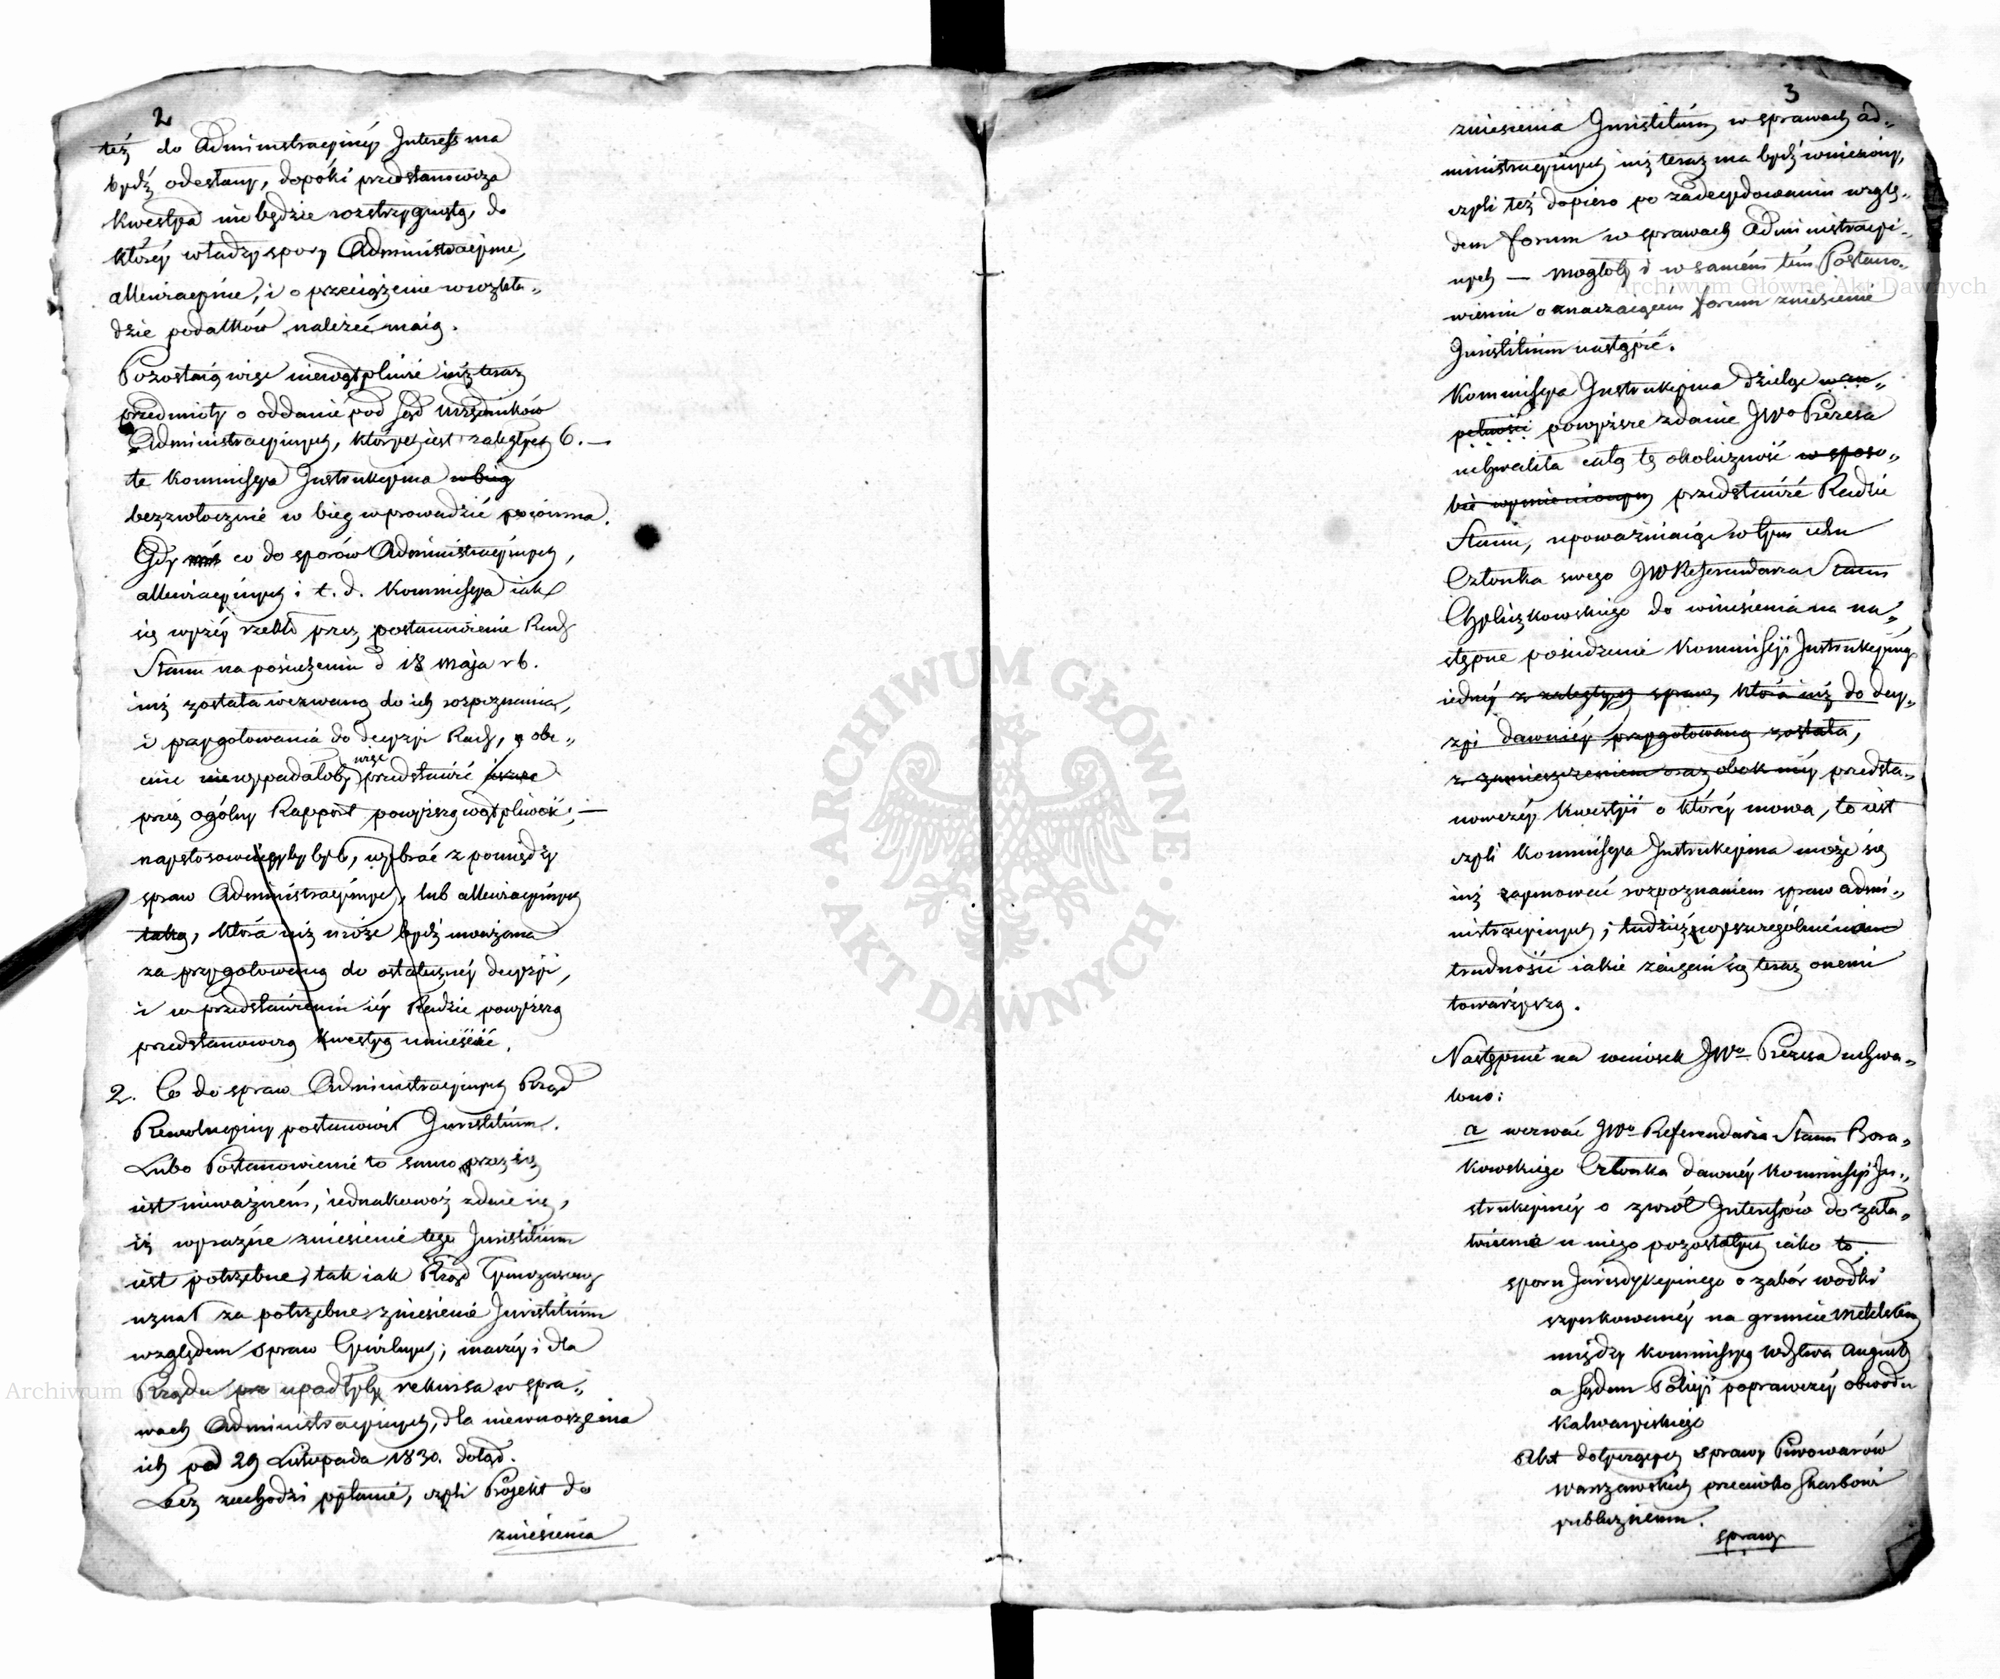 2
też do Administracyinéy Interess ma
bydź odesłany, dopóki przedstanowcza
Kwestya nie będzie rozstrzygnięta, do
któréy władzy spory Administracyine,
allewiacyine, i o przeciążenie w rozkła-
dzie podatków należeć maią.
Pozostaią więc niewątpliwie iuż teraz
przedmioty o oddanie pod Sąd Urzędników
Administracyinych, których iest zaległych 6. —
te Kommissya Instrukcyina w bieg
bezzwłocznie w bieg wprowadzić powinna.
Gdy co do sporów Administracyinych,
allewiacyinych i t. d. Kommissya iak
się wyżéy rzekło przez postanowienie Rady
Stanu na posiedzeniu d 18 maja r b.
iuż została wezwaną do ich rozpoznania,
i przygotowania do decyzyi Rady, obe-
cnie niewypadałoby więc przedstawić
przez ogólny Rapport powyższą wątpliwość; —
naystosowniéy by było, wybrać z pomiędzy
spraw Administracyinych, lub allewiacyinych
taką, która iuż może bydź uważana
za przygotowaną do ostateczney decyzyi,
i w przedstawieniu iéy Radzie powyższą
przedstanowczą Kwestyą umieścić.
2. Co do spraw Administracyinych Rząd
Rewolucyiny postanowił Juristitium.
Lubo Postanowienie to samo przez się
iest nieważném, iednakowoż zdaie się,
iż wyraźne zniesienie tego Juristitium
iest potrzebne, tak iak Rząd Tymczasowy
uznał za potrzebne zniesienie Juristitium
względem spraw Cywilnych; inaczéy i dla
Rządu upadłyby rekursa w spra-
wach Administracyinych, dla niewnoszenia
ich pod 29 Listopada 1830. dotąd.
Lecz zachodzi pytanie, czyli Projekt do
zniesienia
3
zniesienia Juristitium w sprawach ad-
ministracyinych iuż teraz ma bydź wniesiony,
czyli też dopiero po zadecydowaniu wzglę-
dem forum w sprawach Administracyi-
nych — mogłoby i w samém tém Postano-
wieniu oznaczaiącem forum zniesienie
Juristitium nastąpić.
Kommissya Instrukcyina dzieląc wąt-
pliwości powyższe zdanie JWo Prezesa
uchwaliła całą tę okoliczność w sposo-
bie wymienionym przedstawić Radzie
Stanu, upoważniaiąc w tym celu
Członka swego JW Referendarza Stanu
Chyliczkowskiego do wniesienia na na-
stępne posiedzenie Kommissyi Instrukcyinéy
iednéy z zaległych spraw, która iuż do decy-
zyi dawniéy przygotowaną została,
z zamieszczeniem oraz obok niéy przedsta-
nowczéy Kwestyi o któréy mowa, to iest
czyli Kommissya Instrukcyina może się
iuż zaymować rozpoznaniem spraw admi-
nistracyinych; tudzież wyszczególnieniem
trudności iakie zaięciu się teraz onemi
towarzyszą.
Następnie na wniosek JWo Prezesa uchwa-
lono:
a wezwać JWo Referendarza Stanu Bora-
kowskiego Członka dawnéy Kommissyi In-
strukcyinéy o zwrot Interessów do zała-
twienia u niego pozostałych iako to
sporu Jurisdykcyinego o zabór wódki
szynkowanéy na gruncie
między Kommissyą Wdztwa August
a Sądem Policyi poprawczéy obwodu
Kalwaryiskiego
Akt dotyczących sprawy Piwowarów
warszawskich przeciwko Skarbowi
publicznemu.
sprawy
Archiwum Główne Akt Dawnych
ARCHIWUM GŁÓWNE · AKT DAWNYCH ·